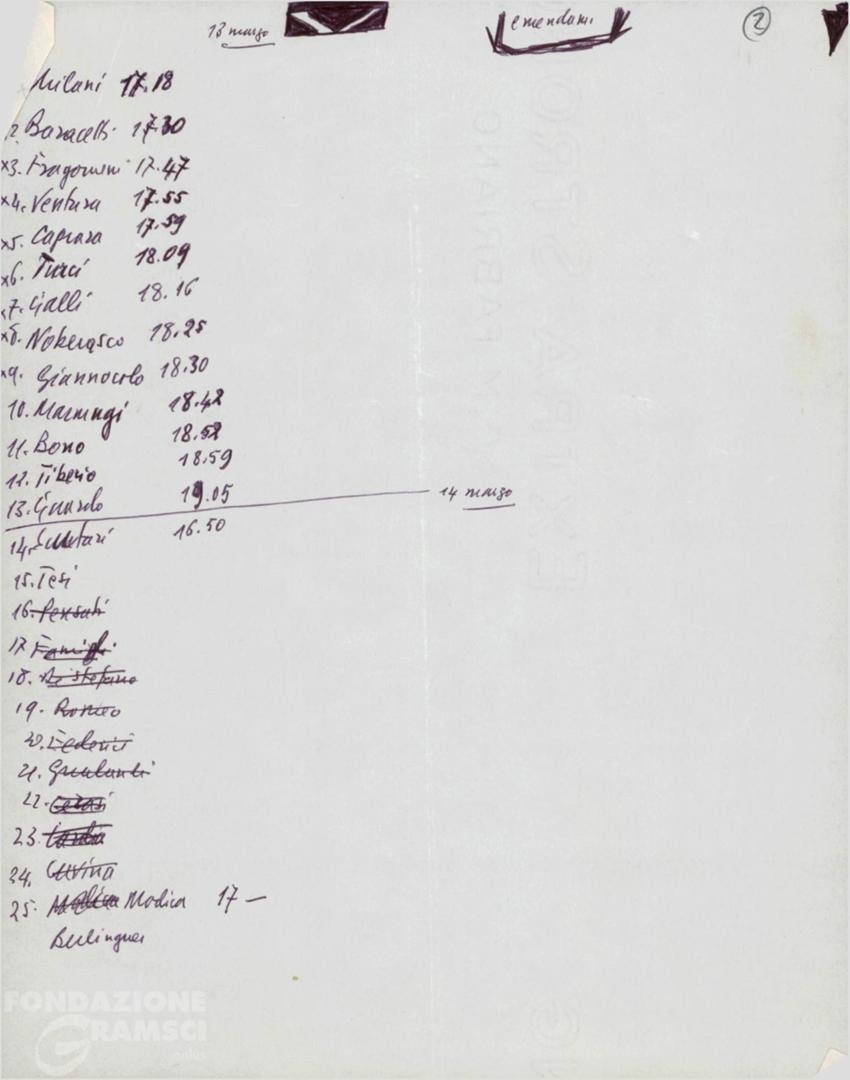 13 marzo
emendam.
2
Milani 17.18
2. Baracetti 17.30
x3. Fragomeni 17.47
x4. Ventura 17.55
x5. Caprara 17.59
x6. Turci 18.09
x7. Galli 18.16
x8. Noberasco 18.25
x9. Giannocolo 18.30
10. Marmugi 18.42
11. Bono 18.52
12. Tiberio 18.59
13. 19.05
14 marzo
14. 16.50
15. Tesi
16. Pensati
17.
18. Di Stefano
19. Romeo
20. Federici
21. Gualandi
22.
23.
24.
25. Modica Modica 17 —
Berlinguer
FABRIANO
EXTRA STRO
FONDAZIONE
GRAMSCI
onlus